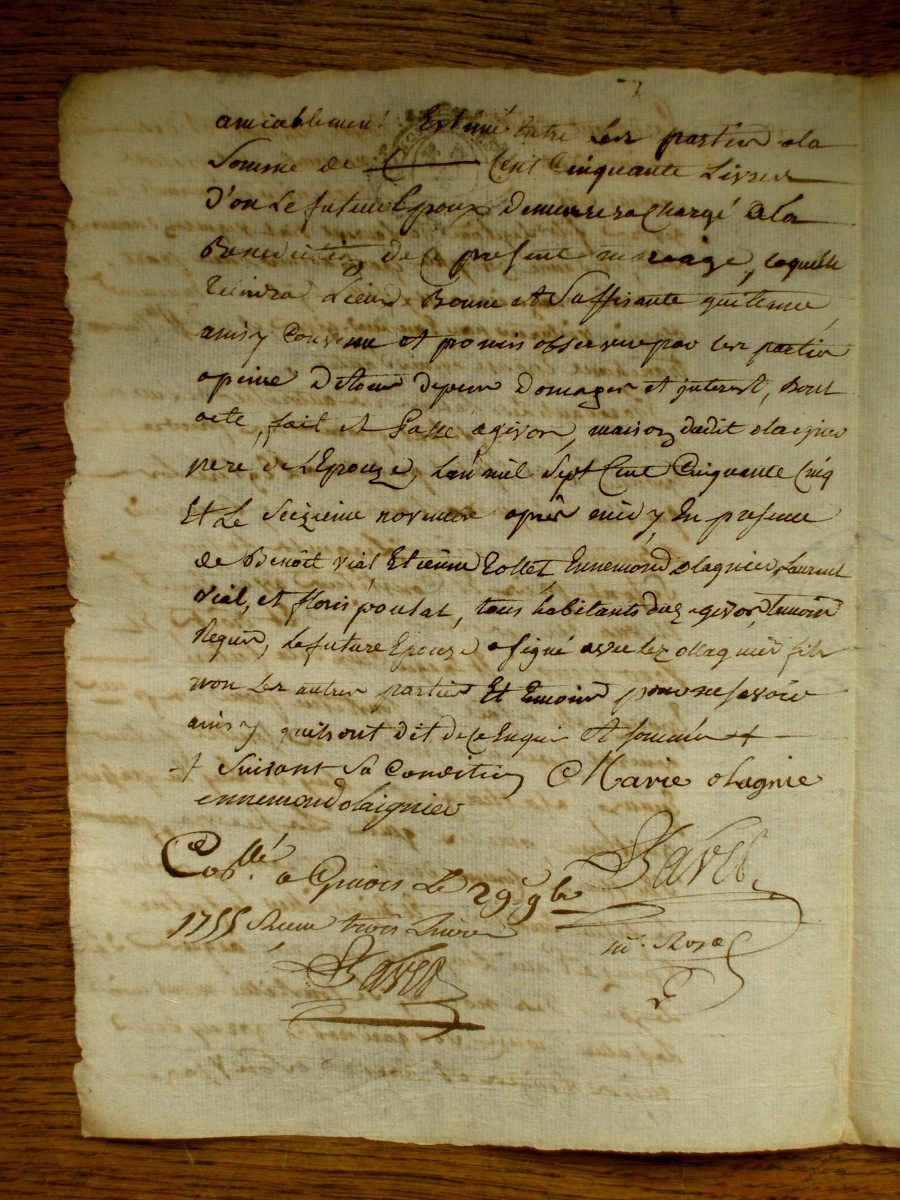 amiablement Estimé Entre les parties ala
Somme de C Cent Cinquante Livres
D'on Le futur Epoux demeurera Chargé ala
Benediction de Ce present mariage, laquelle
tiendra Lieu Bonne et Suffisante quittance,
ainsy Convenu et promis observer par les parties
apeine de tous depens domages et interest, Dont
acte, fait et Passé agivors, maison dudit olaignier
pere de L'Epouze, L'an mil Sept Cent Cinquante Cinq
Et Le Seizieme novembre après midy, En presence
de Benoit vial Etienne Ennemond olagnier, Laurent
vial, et floris poulat, tous habitants dud. agivors, temoins
Requis, Le future Epouse a signé avec Led. ollagnier fils
non Les autres parties Et temoins pour ne savoir
ainsy quils ont dit de ce Enquis Et sommés +
+ Suivant Sa Condition Marie olagnie
ennemond olaignier
Collé a Givors Le 29 9bre
1755 Receu trois Livres